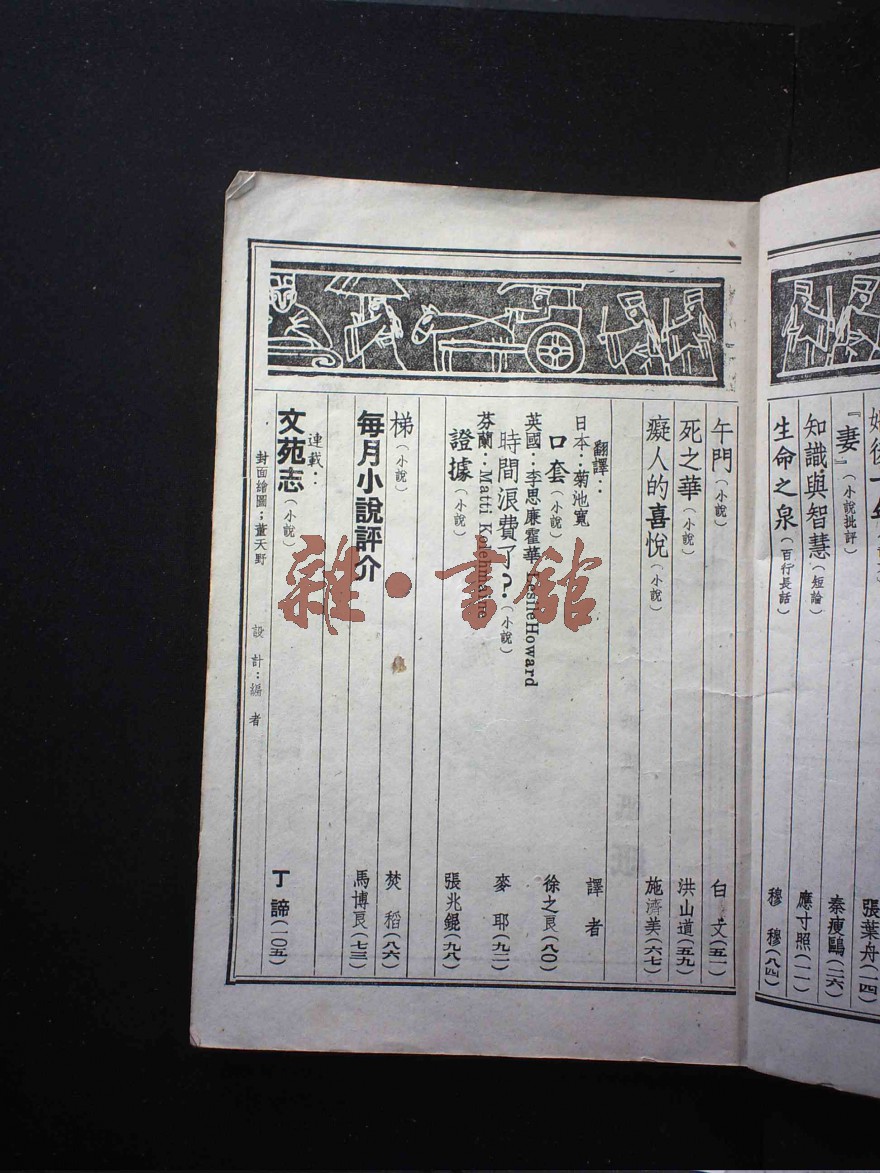 『妻』(小說批評) 秦瘦鷗(二六)
知識與智慧(短論) 應寸照(一一)
生命之泉(百行長話) 穆 穆(八四)
張葉舟(一四)
午門(小說) 白 文(五一)
死之華(小說) 洪山道(五九)
癡人的喜悅(小說) 施濟美(六七)
翻譯： 譯 者
日本：菊池寬
口套(小說) 徐之良(八〇)
英國：李思廉霍華 LeslieHoward
時間浪費了？(小說) 麥 耶(九二)
芬蘭：Matti
證據(小說) 張兆鯤(九八)
梯(小說) 焚 稻(八六)
每月小說評介 馬博良(七三)
連載：
文苑志(小說) 丁 諦(一〇五)
封面繪圖；董天野 設計：編者
雜·書館